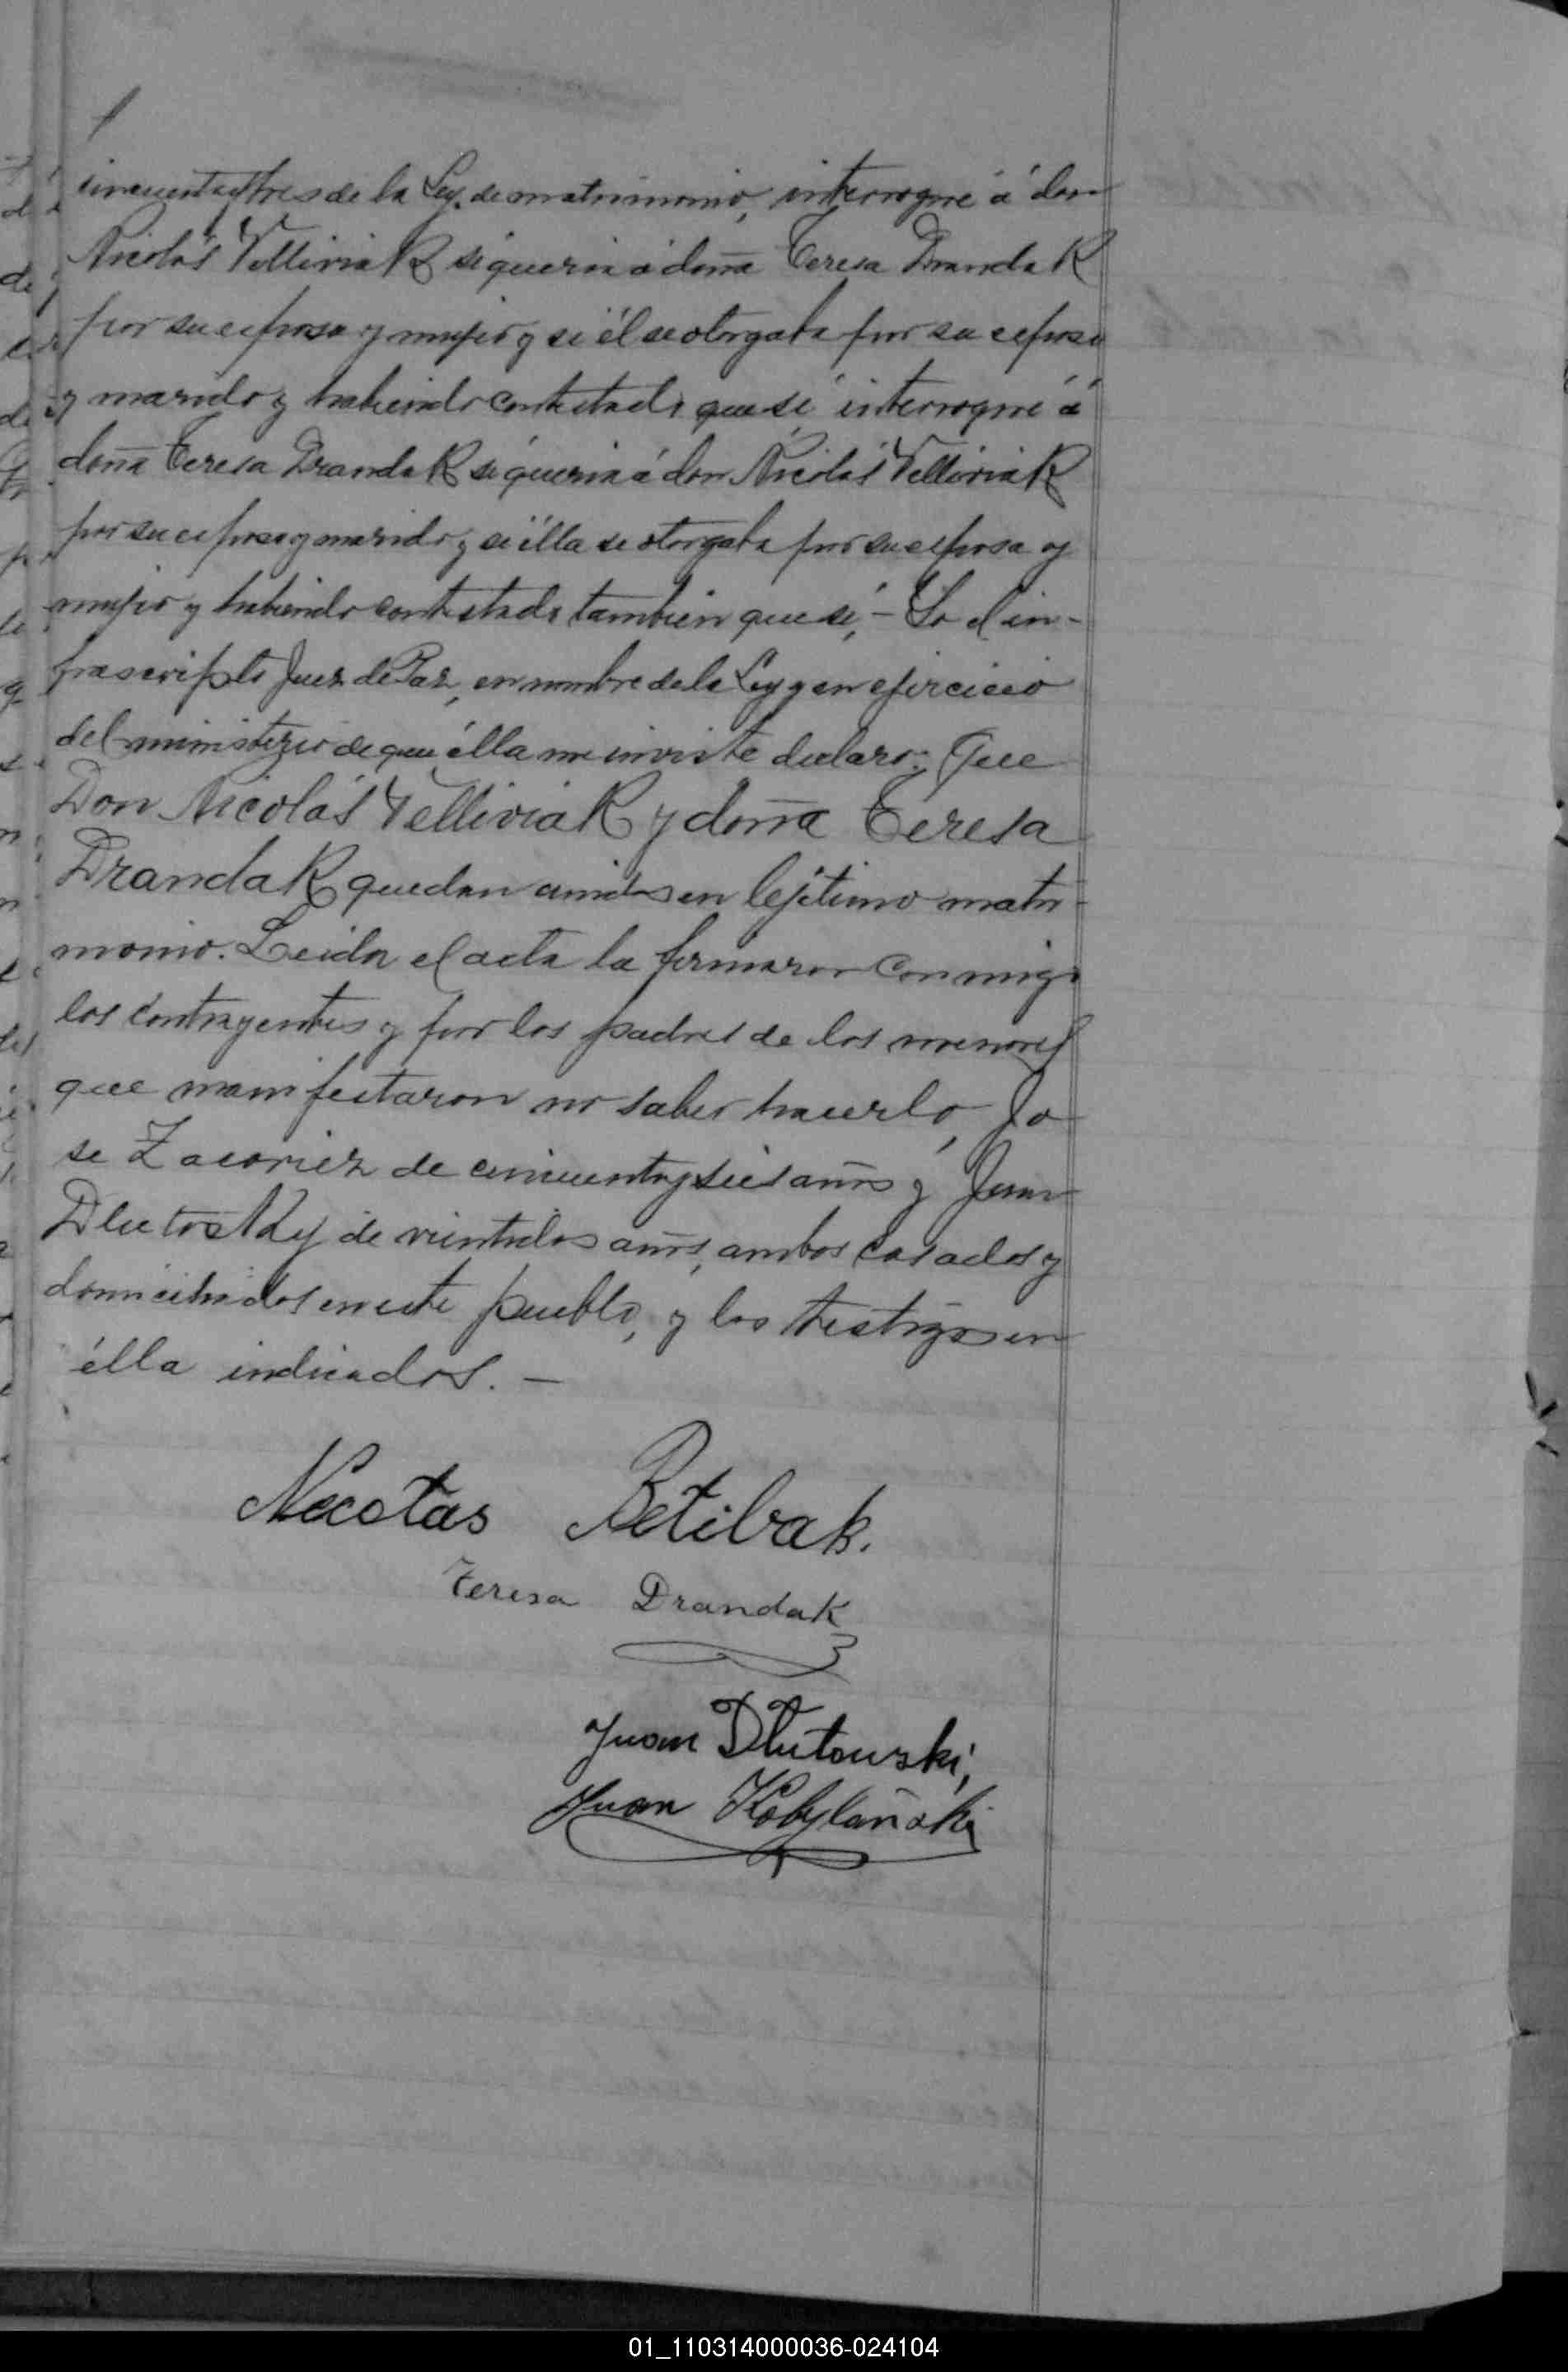 cincuenta y tres de la Ley de matrimonio, interrogué á don
Nicolás Velliviak si queria á doña Teresa Drandak
por su esposa y mujer y si él se otorgaba por su esposo
y marido y habiendo contestado que sí interrogué á
doña Teresa Drandak si queria á don Nicolás Velliviak
por su esposo y marido y si élla se otorgaba por su esposa y
mujer y habiendo contestado tambien que sí, - Yo el in-
frascripto Juez de Paz, en nombre de la Ley y en ejercicio
del ministerio de que élla me inviste declaro: Que
Don Nicolás Velliviak y doña Teresa
Drandak quedan unidos en lejítimo matri-
monio. Leida el acta la firmaron conmigo
los contrayentes y por los padres de los menores
que manifestaron no saber hacerlo, Jo
se Zacoriez de cincuenta y seis años y Juan
Dlutosky de veintidos años, ambos casados y
domiciliados en este pueblo, y los testigos en
élla indicados. -
Necotas Betibak.
Teresa Drandak
Juan Dlutouski,
Juan Kobylañski
01_110314000036-024104